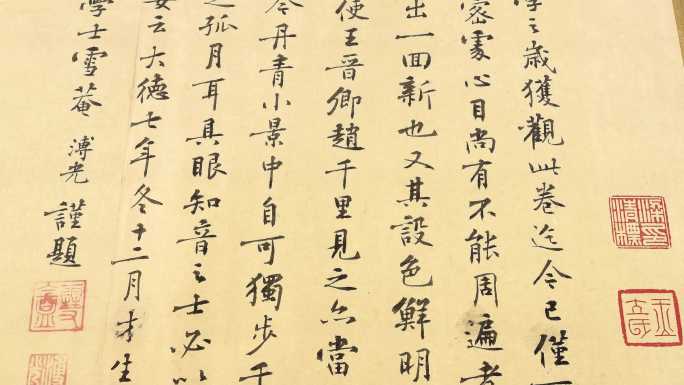 學之歲獲觀此卷迄今已僅
密處心目尚有不能周遍者
出一面新也又其設色鮮明
使王晉卿趙千里見之亦當
今丹青小景中自可獨步千
之孤月耳具眼知音之士必以
妄云大德七年冬十二月才生
學士雪菴溥光謹題